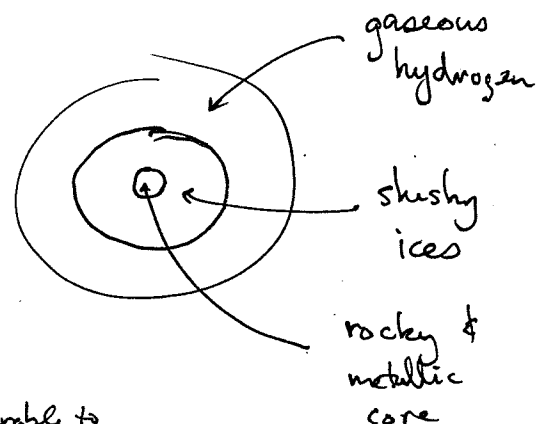 gaseous
hydrogen
slushy
ices
rocky &
metallic
core
to